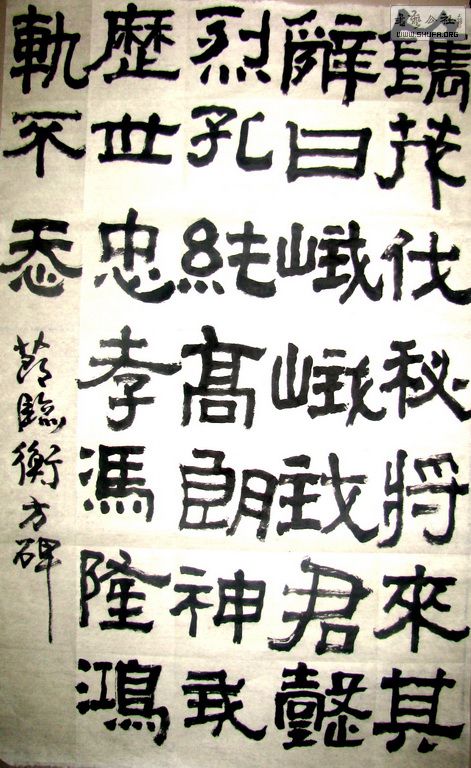 鐫茂伐秘將來其
辭曰峨峨我君懿
烈孔純高朗神武
歷世忠孝馮隆鴻
軌不忝
節臨衡方碑
书艺公社
WWW.SHUFA.ORG